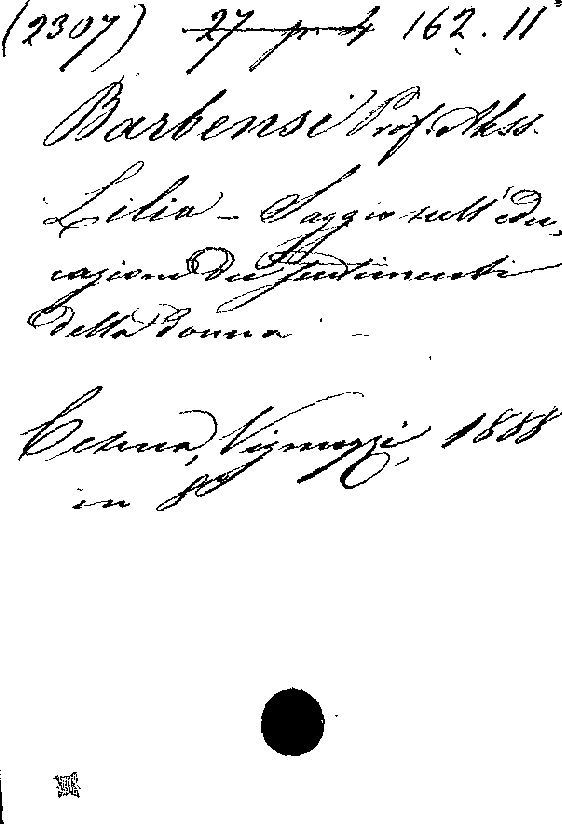 (2307) 27 p 4 162. 11
Barbensi Prof. Aless.
Lilia - Saggio sull'edu,
cazione dei sentimenti
della donna -
Cesena, Vignuzzi, 1888
in 8°